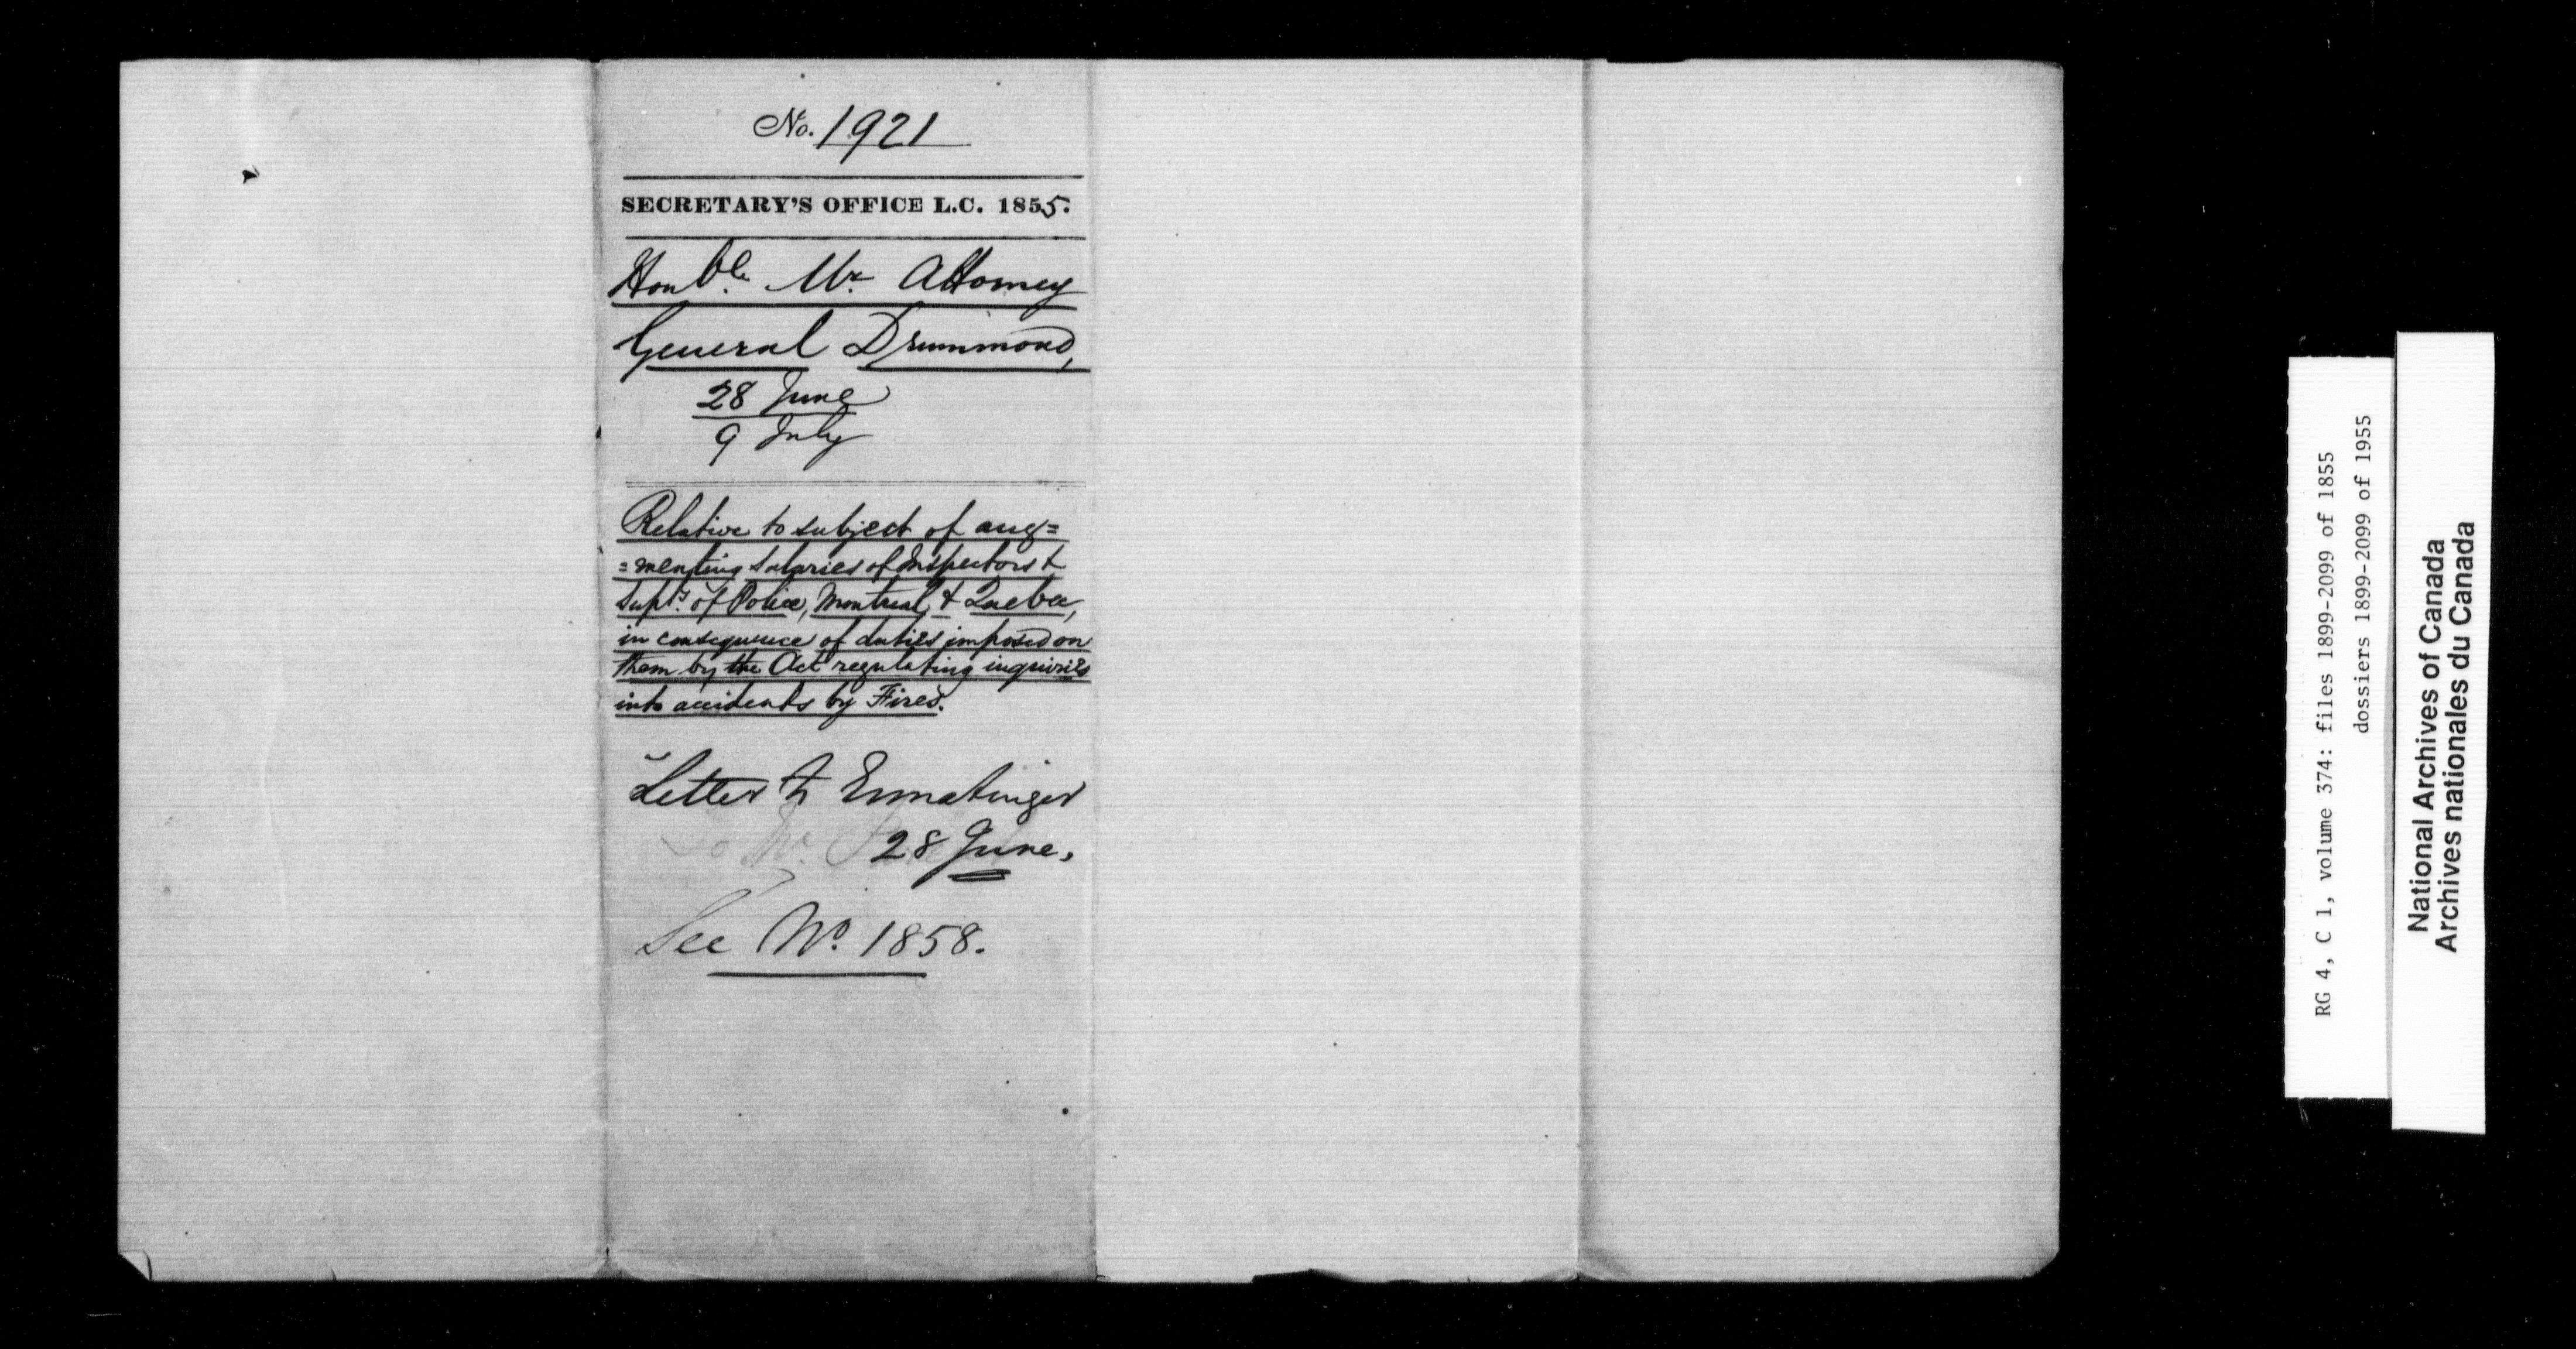 No. 1921
SECRETARY'S OFFICE L.C. 1855.
Honble. Mr. Attorney
General Drummond,
28 June
9 July
Relative to subject of aug=
=menting salaries of Inspectors &
Supts. of Police, Montreal, & Quebec,
in consequence of duties imposed on
them by the Act regulating inquiries
into accidents by Fires.
Letter to Ermatinger
28 June.
See No. 1858.
RG 4, C 1, volume 374: files 1899-2099 of 1855
dossiers 1899-2099 of 1955
National Archives of Canada
Archives nationales du Canada